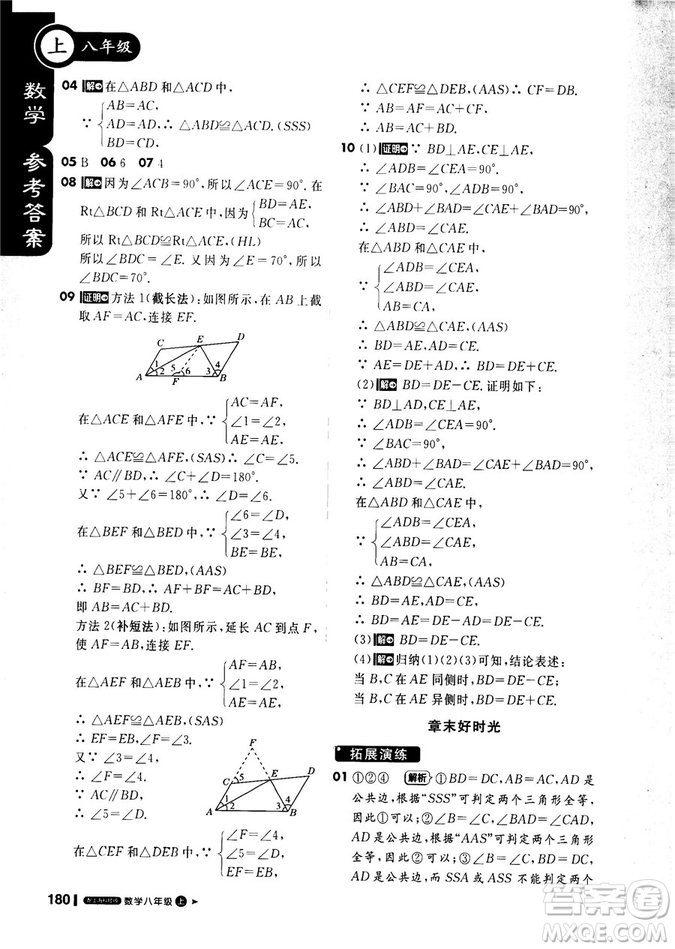 上 八年级
数学 参考答案
04 解 在△ABD 和△ACD 中,
∵ { AB=AC, AD=AD, BD=CD, ∴ △ABD≌△ACD. (SSS)
05 B 06 6 07 4
08 解 因为∠ACB=90°, 所以∠ACE=90°. 在
Rt△BCD 和 Rt△ACE 中, 因为 { BD=AE, BC=AC,
所以 Rt△BCD≌Rt△ACE. (HL)
所以∠BDC=∠E. 又因为∠E=70°, 所以
∠BDC=70°.
09 证明 方法 1(截长法): 如图所示, 在 AB 上截
取 AF=AC, 连接 EF.
C E D
1 2 5 6 3 4
A F B
在△ACE 和△AFE 中, ∵ { AC=AF, ∠1=∠2, AE=AE,
∴ △ACE≌△AFE, (SAS) ∴ ∠C=∠5.
∵ AC∥BD, ∴ ∠C+∠D=180°.
又∵ ∠5+∠6=180°, ∴ ∠D=∠6.
在△BEF 和△BED 中, ∵ { ∠6=∠D, ∠3=∠4, BE=BE,
∴ △BEF≌△BED, (AAS)
∴ BF=BD. ∴ AF+BF=AC+BD.
即 AB=AC+BD.
方法 2(补短法): 如图所示, 延长 AC 到点 F,
使 AF=AB, 连接 EF.
在△AEF 和△AEB 中, ∵ { AF=AB, ∠1=∠2, AE=AE,
∴ △AEF≌△AEB, (SAS)
∴ EF=EB, ∠3=∠F.
∵ AC∥BD, ∴ ∠5=∠D.
F
C 5 E D
1 2 3 4
A B
在△CEF 和△DEB 中, ∵ { ∠F=∠4, ∠5=∠D, EF=EB,
∴ △CEF≌△DEB, (AAS) ∴ CF=DB.
∴ AB=AF=AC+CF=AC+BD.
10 (1) 证明 ∵ BD⊥AE, CE⊥AE,
∴ ∠ADB=∠CEA=90°.
∵ ∠BAC=90°, ∴ ∠BAD+∠CAE=90°.
又∵ ∠ABD+∠BAD=90°,
∴ ∠ABD=∠CAE.
在△ABD 和△CAE 中,
∵ { ∠ADB=∠CEA, ∠ABD=∠CAE, AB=CA,
∴ △ABD≌△CAE. (AAS)
∴ BD=AE, AD=CE.
∵ AE=DE+AD, ∴ BD=DE+CE.
(2) 解 BD=DE-CE. 证明如下:
∵ BD⊥AD, CE⊥AE,
∴ ∠ADB=∠CEA=90°.
∴ ∠ABD+∠BAD=90°.
∵ ∠BAC=90°, ∴ ∠BAD+∠CAE=90°.
∴ ∠ABD=∠CAE.
在△ABD 和△CAE 中,
∵ { ∠ADB=∠CEA, ∠ABD=∠CAE, AB=CA,
∴ △ABD≌△CAE, (AAS)
∴ BD=AE, AD=CE.
∵ AE=DE-AD, ∴ BD=DE-CE.
(3) 解 BD=DE-CE.
(4) 解 归纳(1)(2)(3)可知, 结论表述:
当 B,C 在 AE 同侧时, BD=DE-CE;
当 B,C 在 AE 异侧时, BD=DE+CE.
章末好时光
拓展演练
01 ①②④ 解析 ①BD=DC, AB=AC, AD 是
公共边, 根据“SSS”可判定两个三角形全等,
因此①可以; ②∠B=∠C, ∠BAD=∠CAD,
AD 是公共边, 根据“AAS”可判定两个三角形
全等, 因此②可以; ③∠B=∠C, BD=DC,
AD 是公共边, 而 SSA 或 ASS 不能判定两个
180 数学八年级 上
答案圈
MXQE.COM